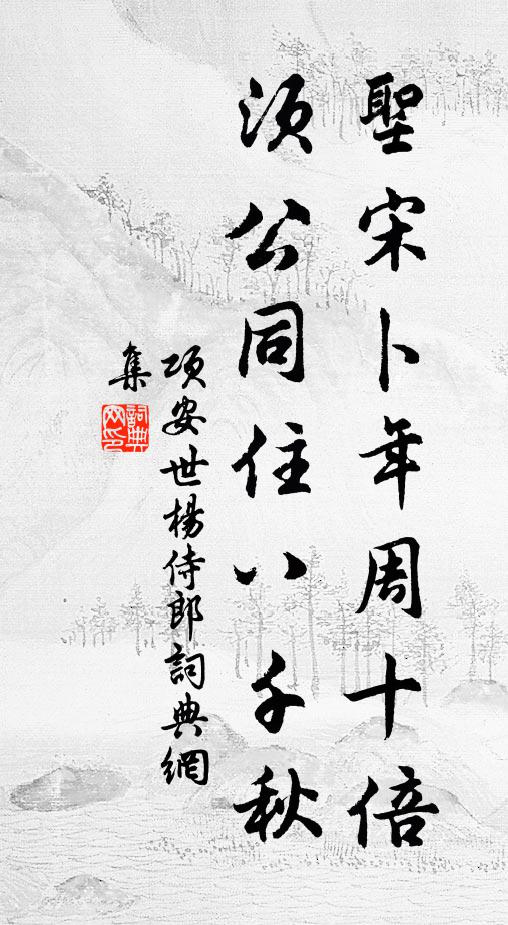 聖宋卜年周十倍
須公同住八千秋
項安世楊侍郎詞典網
集
詞典
網印